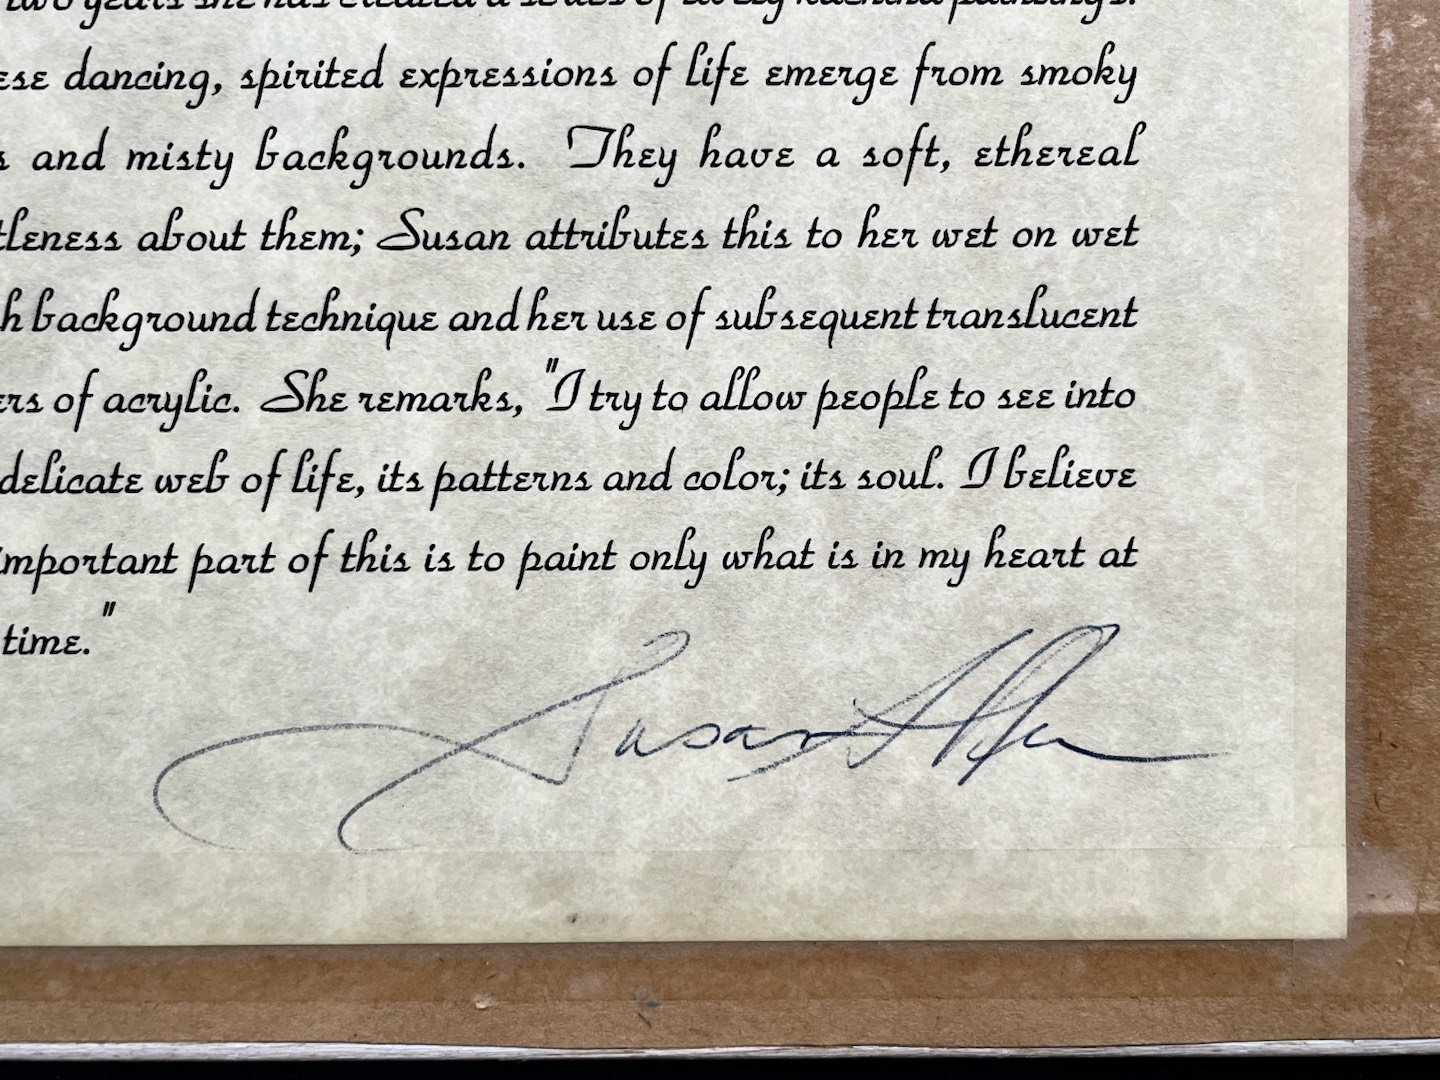 two years she has created a series of lively kachina paintings.
ese dancing, spirited expressions of life emerge from smoky
s and misty backgrounds. They have a soft, ethereal
tleness about them; Susan attributes this to her wet on wet
h background technique and her use of subsequent translucent
ers of acrylic. She remarks, "I try to allow people to see into
delicate web of life, its patterns and color; its soul. I believe
important part of this is to paint only what is in my heart at
time."
Susan